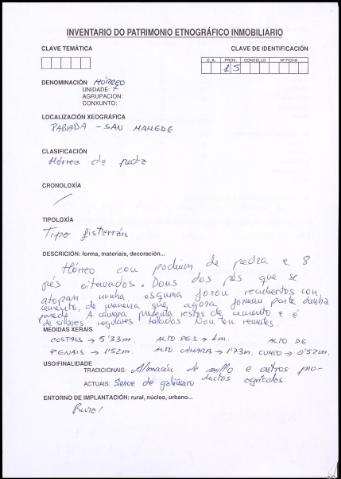 INVENTARIO DO PATRIMONIO ETNOGRÁFICO INMOBILIARIO
CLAVE TEMÁTICA CLAVE DE IDENTIFICACIÓN
C.A. PROV. CONCELLO Nº FICHA
15
DENOMINACIÓN HÓRREO
UNIDADE:
AGRUPACION:
CONXUNTO:
LOCALIZACIÓN XEOGRÁFICA
- SAN MAMEDE
CLASIFICACIÓN
Hórreo de pedra
CRONOLOXÍA
/
TIPOLOXÍA
Tipo fisterrán
DESCRICIÓN: forma, materiais, decoración...
Hórreo con podium de pedra e 8
pés oitavados. Dous dos pés que se
atopan nunha esquina foron recubertos con
cemento, de maneira que agora forman parte dunha
parede. A cámara presenta restos de cemento e é
de sillares regulares tallados. Non ten remates.
MEDIDAS XERAIS
COSTAIS → 5'33m ALTO PES → 1m. ALTO DE
PENAIS → 1'52m. ALTO CÁMARA → 1'73m, 0'52m.
USO/FINALIDADE
TRADICIONAIS: Almacén de millo e outros pro-
ductos agrícolas.
ACTUAIS: Serve de galiñeiro
ENTORNO DE IMPLANTACIÓN: rural, núcleo, urbano...
Rural